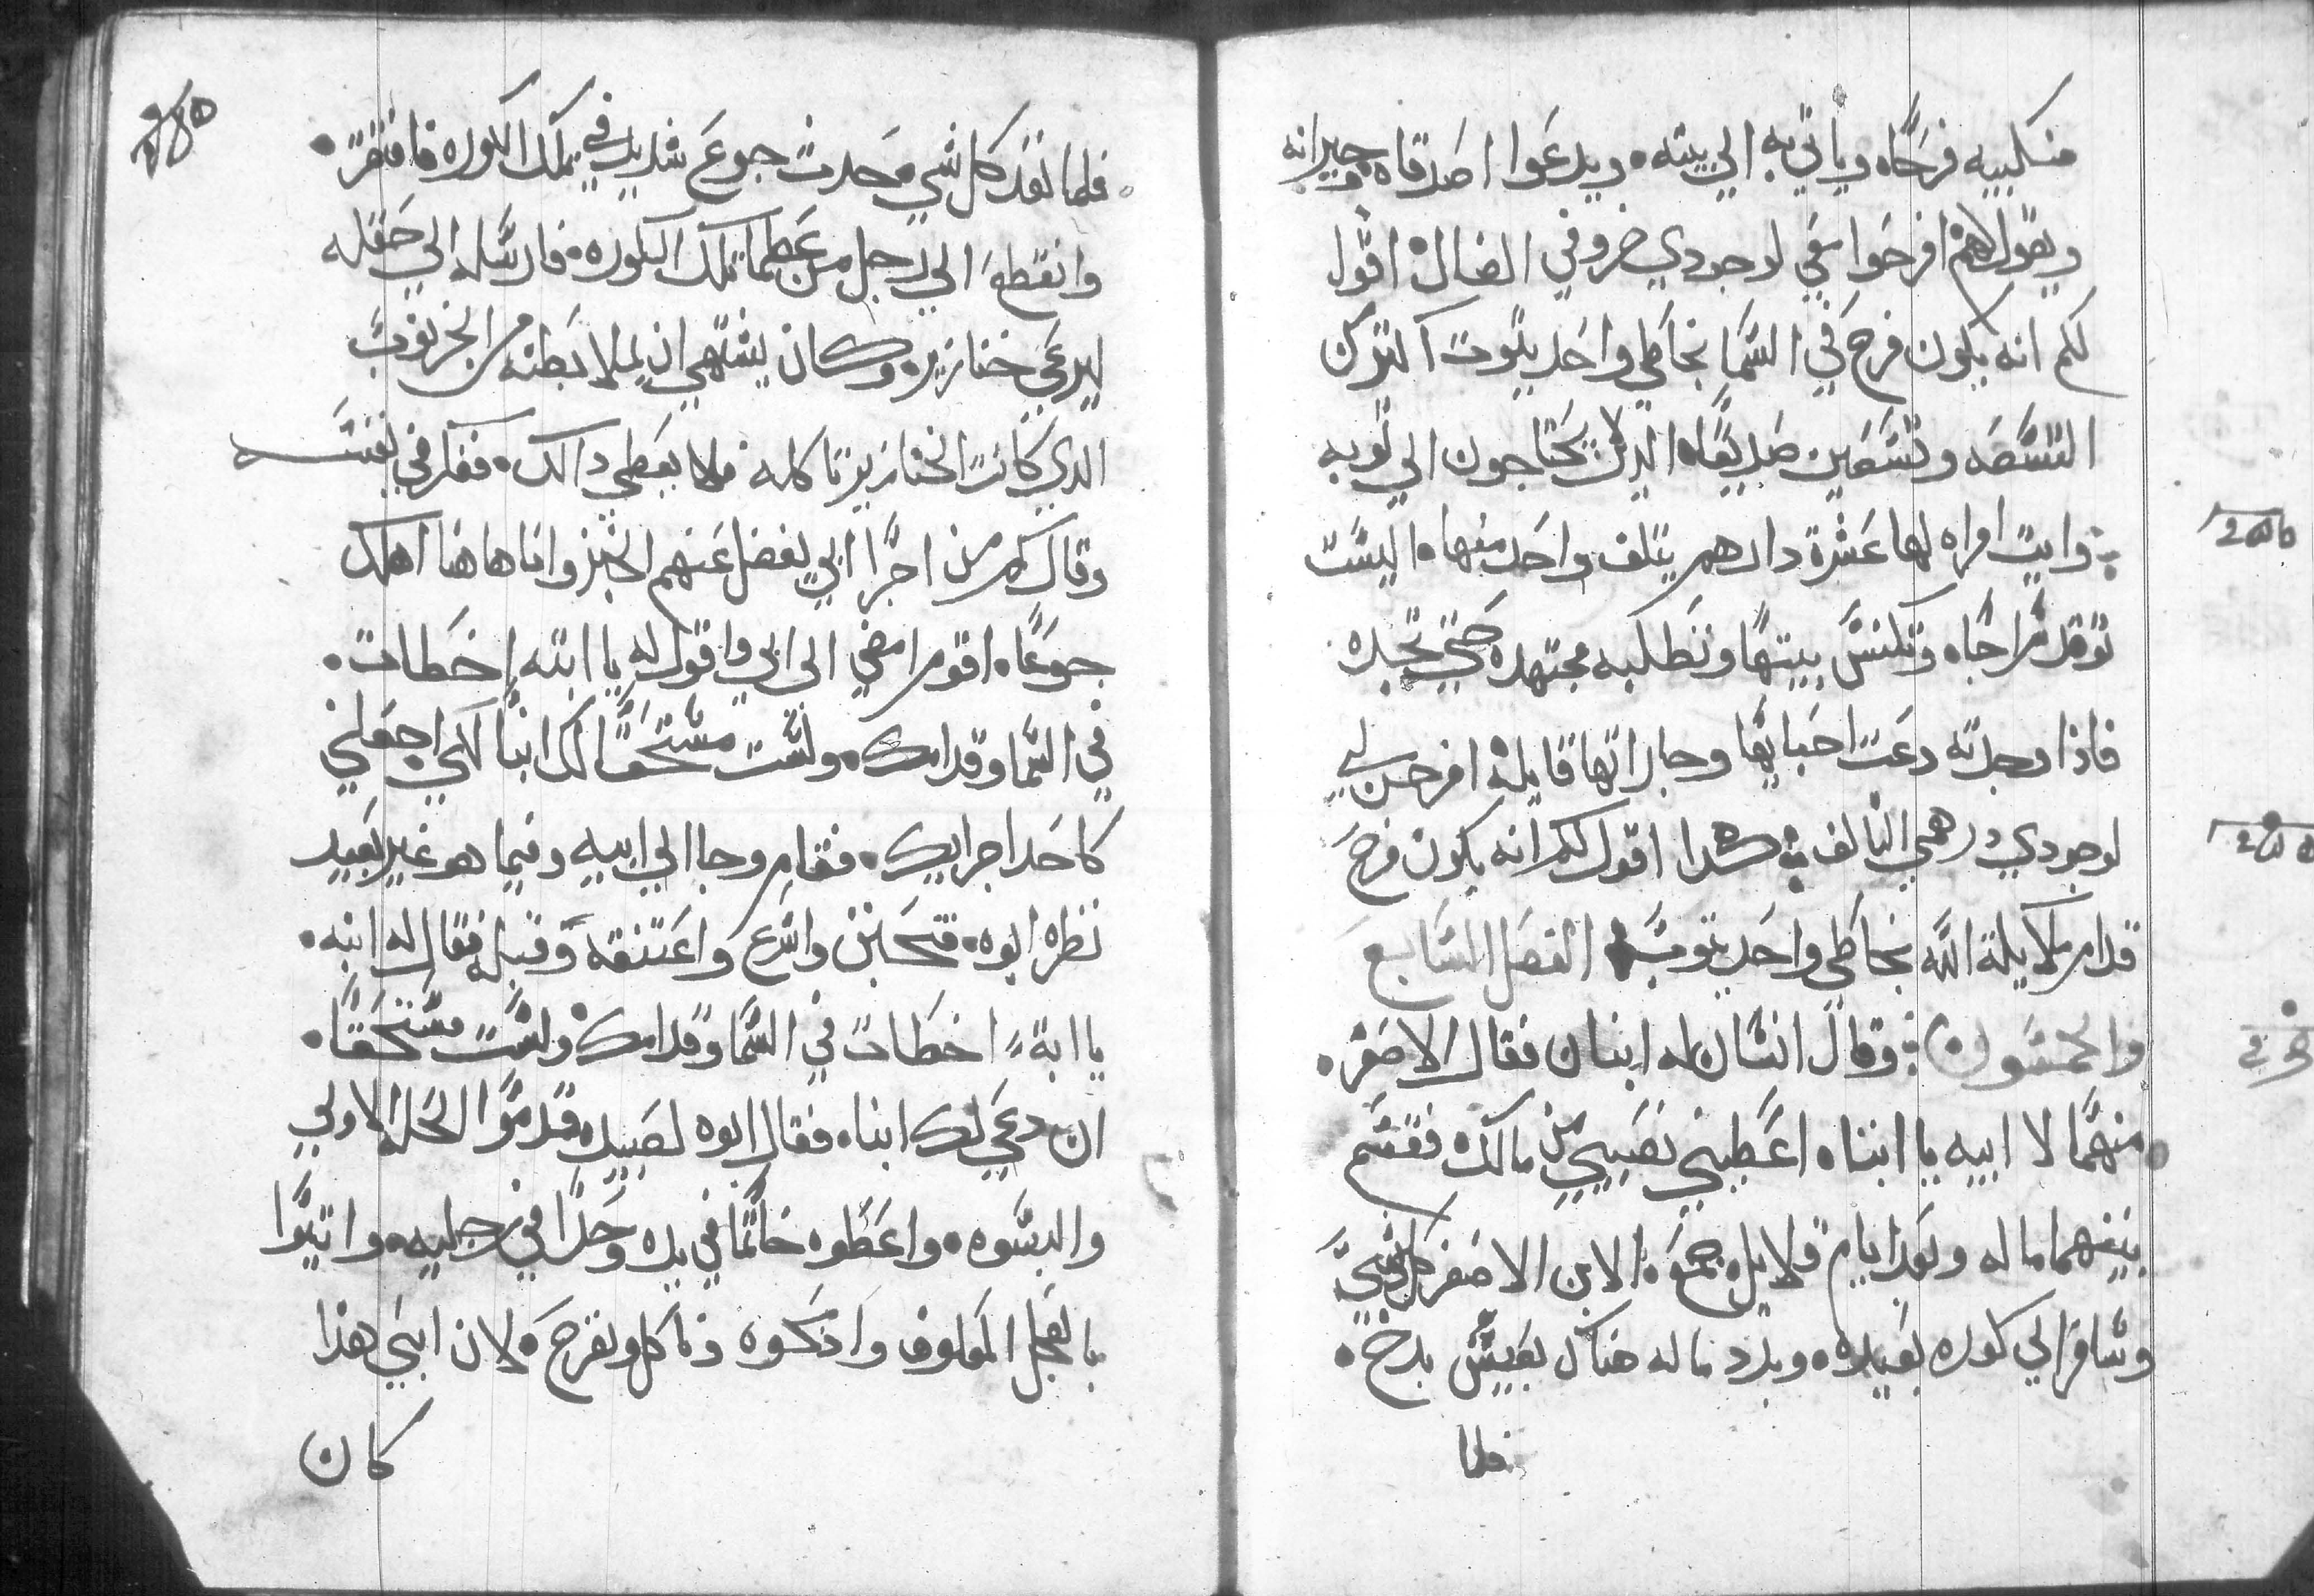 منكبيه فرحًا ه وياتي به الي بيته ه ويدعوا اصدقاه وجيرانه
ويقول لهم افرحوا معي لوجودي خروفي الضال اقول
لكم انه يكون فرح في السما بخاطي واحد يتوب اكثر من
التسعه وتسعين صديقًا ه الذين لا يحتاجون الي توبه
وايت امراه لها عشرة دارهم يتلف واحد منها ه اليست
توقد سراجًا ه وتكنس بيتها وتطلبه مجتهده حتي تجده
فاذا وجدته دعت احبايها وجاراتها قايله افرحن لي
لوجودي درهمي التالف هكدا اقول لكم انه يكون فرح
قدام ملايكة الله بخاطي واحد يتوب الفصل السابع
والخمسون وقال انسان له ابنان فقال الاصغر
منهما لا ابيه يا ابتاه اعطيني نصيبي من مالك فقسم
بينهما ماله وبعد ايام قلايل جمع الابن الاصغر كل شي
وسافر الي كوره بعيده وبدد ماله هناك بعيش بدخ
فلما
فلما نفد كل شي حدث جوع شديد في تلك الكوره فافتقر
وانقطع الي رجل من عظما تلك الكوره فارسله الي حقله
ليرعي خنازيره وكان يشتهي ان يملا بطنه من الخرنوب
الدي كانت الخنازير تاكله فلا يعطي دالك ففكر في نفسه
وقال كم من اجرا ابي يفضل عنهم الخبز وانا هاهنا اهلك
جوعًا ه اقوم امضي الي ابي واقول له يا ابته اخطات
في السما وقدامك ولست مستحقًا لك ابنًا لكي اجعلني
كاحد اجرايك فقام وجا الي ابيه وفيما هو غير بعيد
نظره ابوه فتحنن واسرع واعتنقه وقبله فقال له ابنه
يا ابة اخطات في السما وقدامك ولست مستحقًا
ان ادعي لك ابنا ه فقال ابوه لعبيده قدموا الحله الاولي
والبسوه واعطوه خاتمًا في يده وحدًا في رجليه واتيوا
بالعجل المعلوف وادبحوه وناكل ونفرح لان ابني هذا
كان